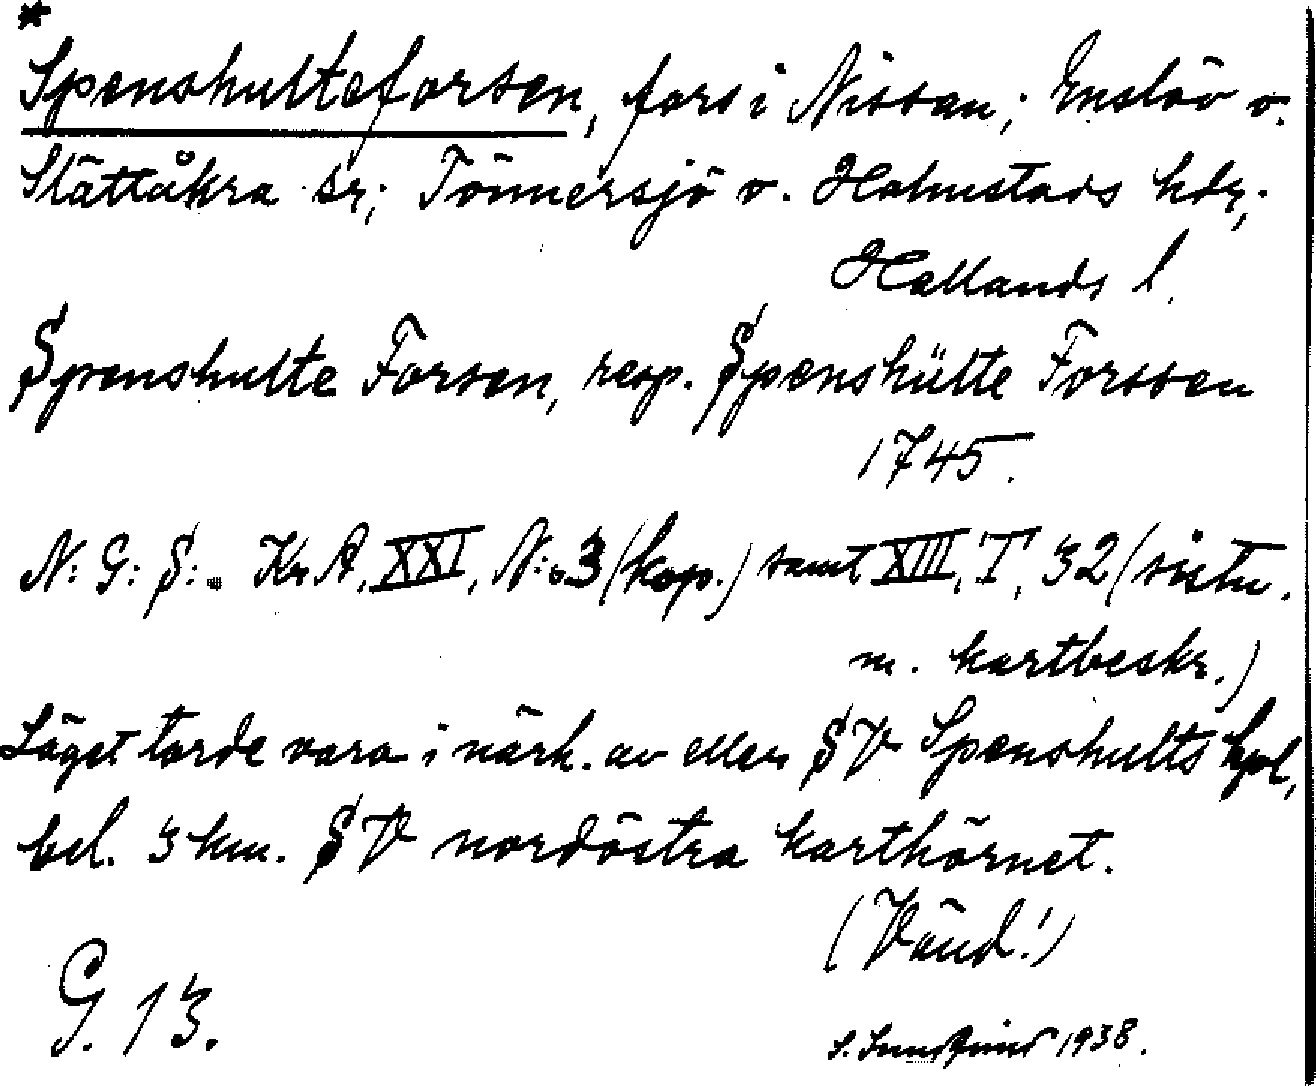 *
Spenshulteforsen, fors i Nissan; Enslöv o.
Slättåkra sr; Tönnersjö o. Halmstads hdr;
Hallands l.
Spenshulte Forsen, resp. Spenshütte Forssen
1745.
N: G: S: Kr A, XXI, N: 3 (kop.) samt XIII, T, 32 (
m. kartbeskr.)
Läget torde vara i närh. av eller SV Spenshults hpl,
bel. 3 km. SV nordöstra karthörnet.
(Vänd!)
G. 13.
1938.